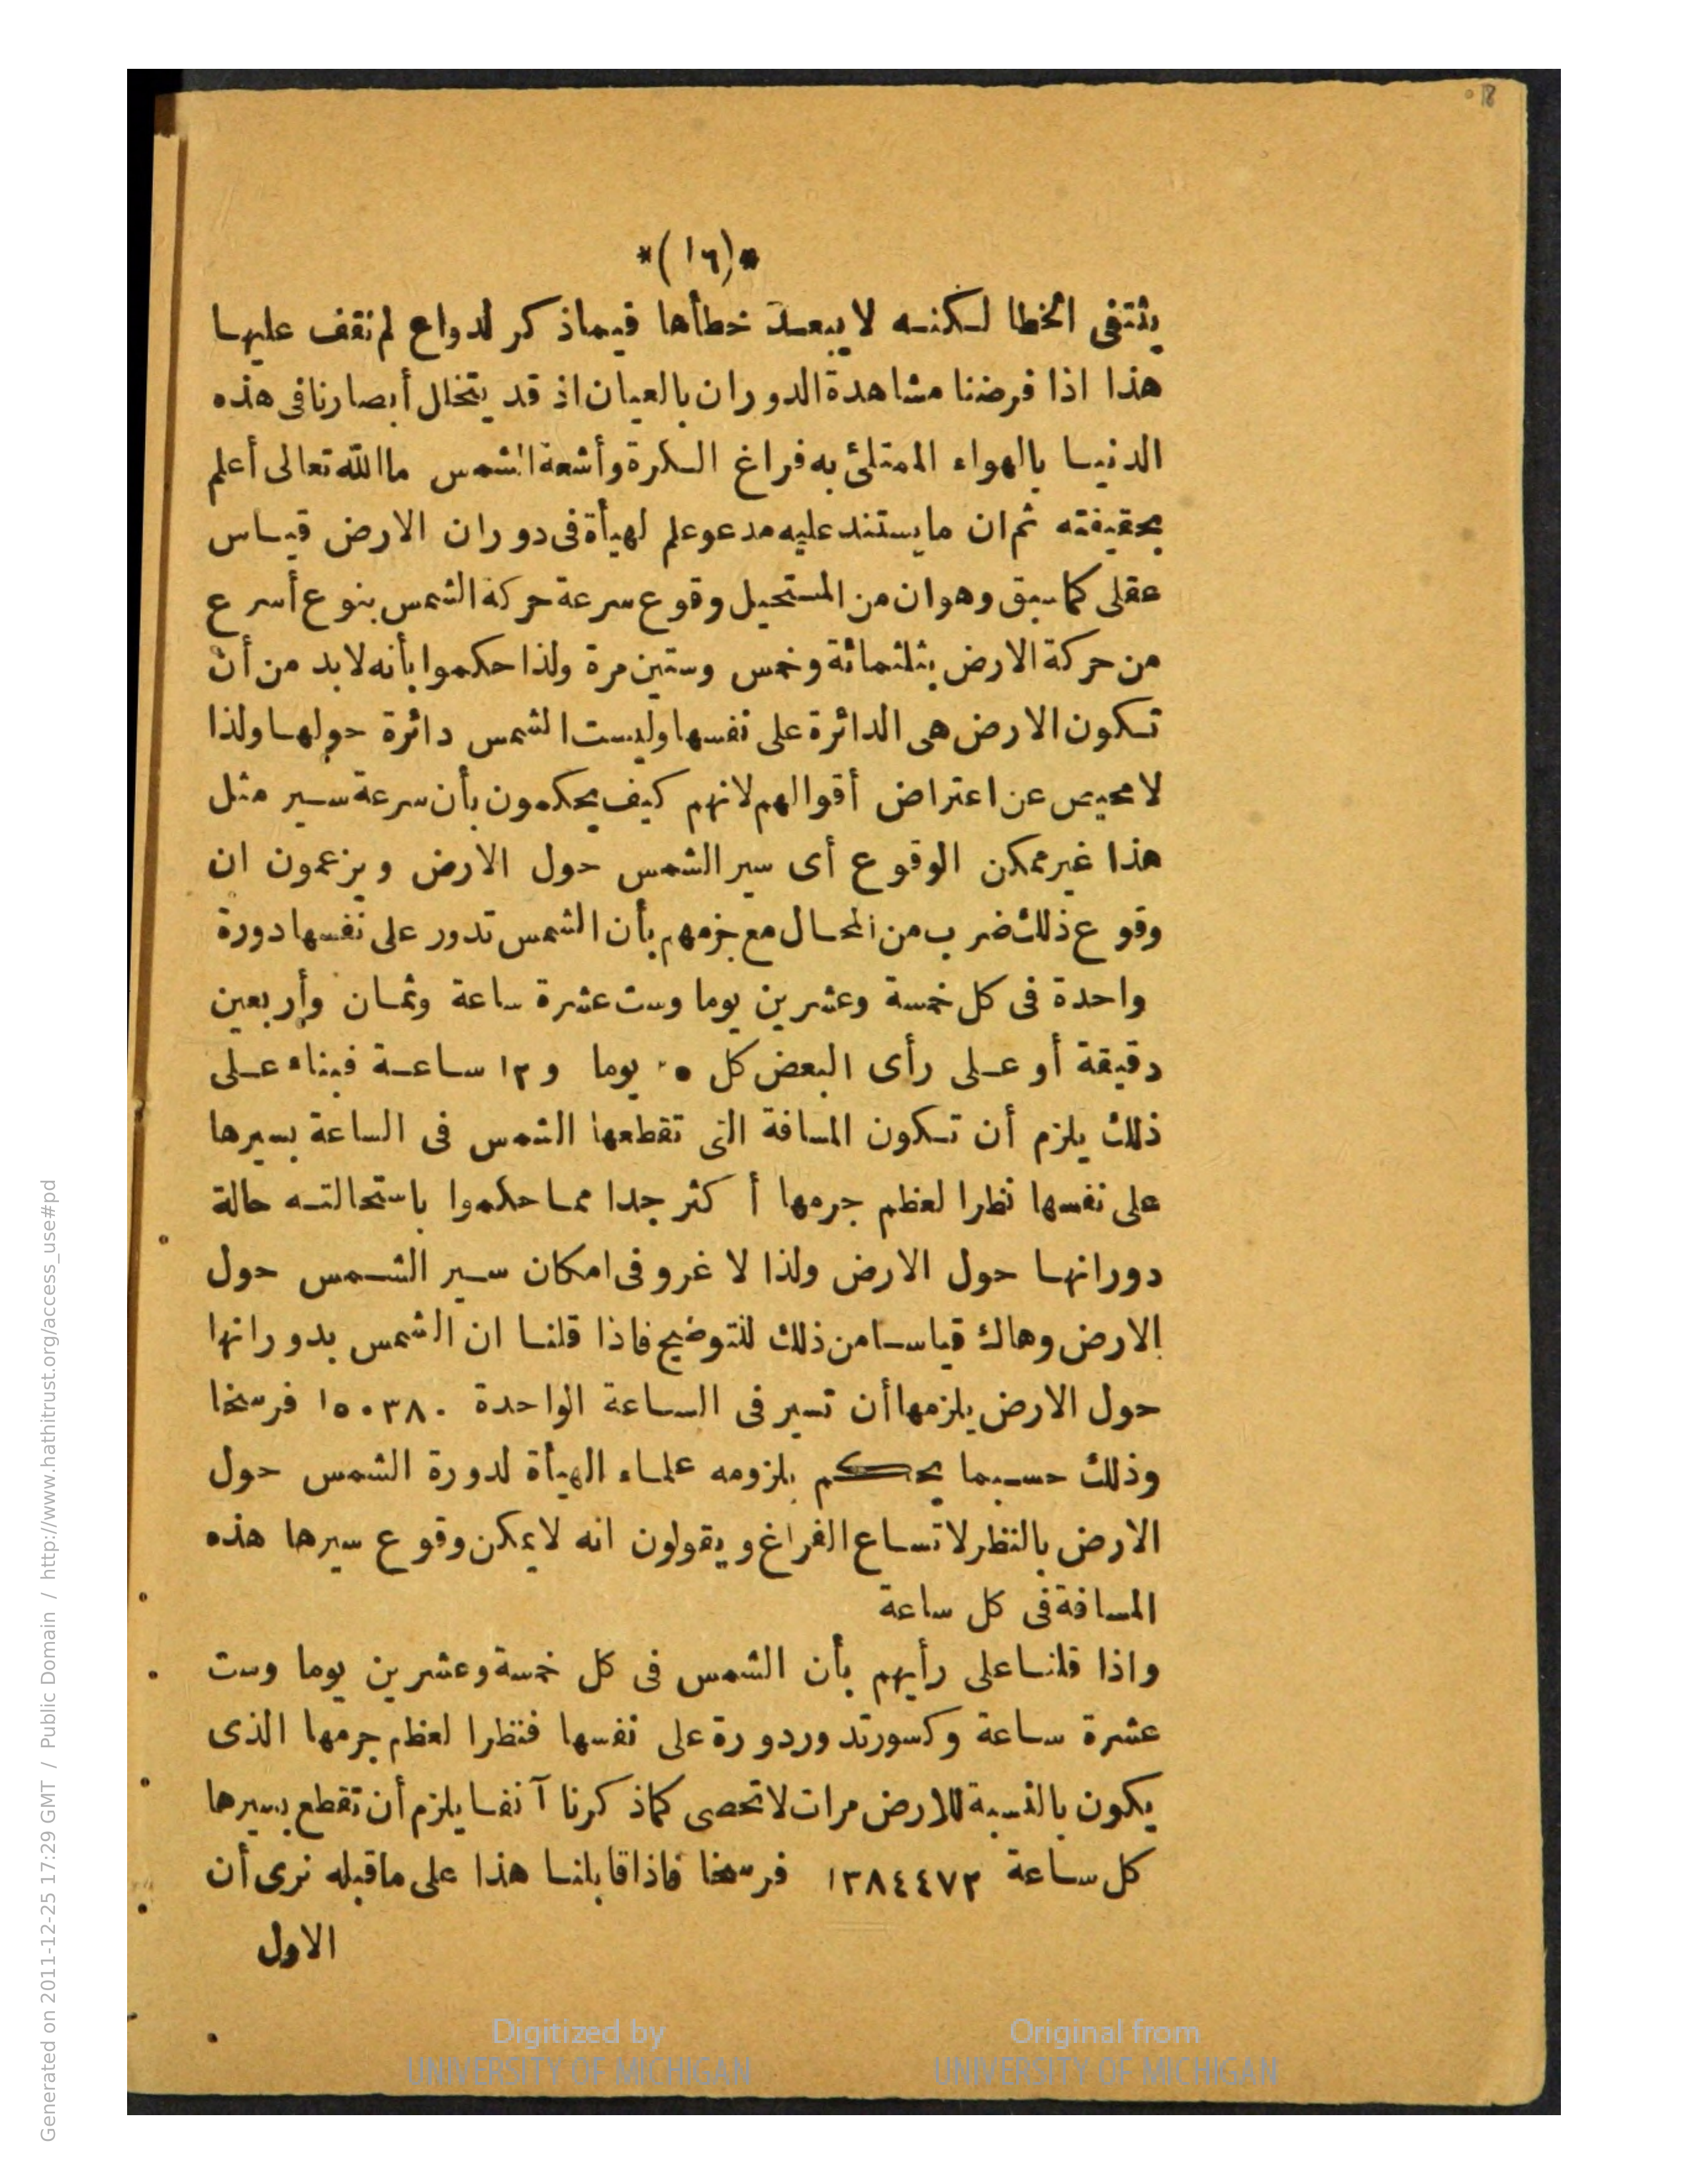 *(١٦)*
ينتفى الخطا لكنه لا يبعد خطأها فيماذكر لدواع لم نقف عليها
هذا اذا فرضنا مشاهدة الدوران بالعيان اذ قد يتخال أبصارنا فى هذه
الدنيا بالهواء الممتلئ به فراغ الكرة وأشعة الشمس ما الله تعالى أعلم
بحقيقته ثم ان ما يستند عليه مدعو علم لهيأة فى دوران الارض قياس
عقلى كماسبق وهو ان من المستحيل وقوع سرعة حركة الشمس بنوع أسرع
من حركة الارض بثلثمائة وخمس وستين مرة ولذا حكموا بأنه لابد من أن
تكون الارض هى الدائرة على نفسها وليست الشمس دائرة حولها ولذا
لا محيص عن اعتراض أقوالهم لانهم كيف يحكمون بأن سرعة سير مثل
هذا غير ممكن الوقوع أى سير الشمس حول الارض ويزعمون ان
وقوع ذلك ضرب من المحال مع جزمهم بأن الشمس تدور على نفسها دورة
واحدة فى كل خمسة وعشرين يوما وست عشرة ساعة وثمان وأربعين
دقيقة أو على رأى البعض كل ٢٥ يوما و ١٢ ساعة فبناء على
ذلك يلزم أن تكون المسافة التى تقطعها الشمس فى الساعة بسيرها
على نفسها نظرا لعظم جرمها أكثر جدا مما حكموا باستحالته حالة
دورانها حول الارض ولذا لا غرو فى امكان سير الشمس حول
الارض وهاك قياسا من ذلك للتوضيح فاذا قلنا ان الشمس بدورانها
حول الارض يلزمها أن تسير فى الساعة الواحدة ١٥٠٣٨٠ فرسخا
وذلك حسبما يحكم بلزومه علماء الهيأة لدورة الشمس حول
الارض بالنظر لاتساع الفراغ ويقولون انه لا يمكن وقوع سيرها هذه
المسافة فى كل ساعة
واذا قلنا على رأيهم بأن الشمس فى كل خمسة وعشرين يوما وست
عشرة ساعة وكسور تدور دورة على نفسها فنظرا لعظم جرمها الذى
يكون بالنسبة للارض مرات لا تحصى كماذكرنا آنفا يلزم أن تقطع بسيرها
كل ساعة ١٣٨٤٤٧٣ فرسخا فاذا قابلنا هذا على ماقبله نرى أن
الاول
Digitized by
UNIVERSITY OF MICHIGAN
Original from
UNIVERSITY OF MICHIGAN
Generated on 2011-12-25 17:29 GMT / Public Domain / http://www.hathitrust.org/access_use#pd